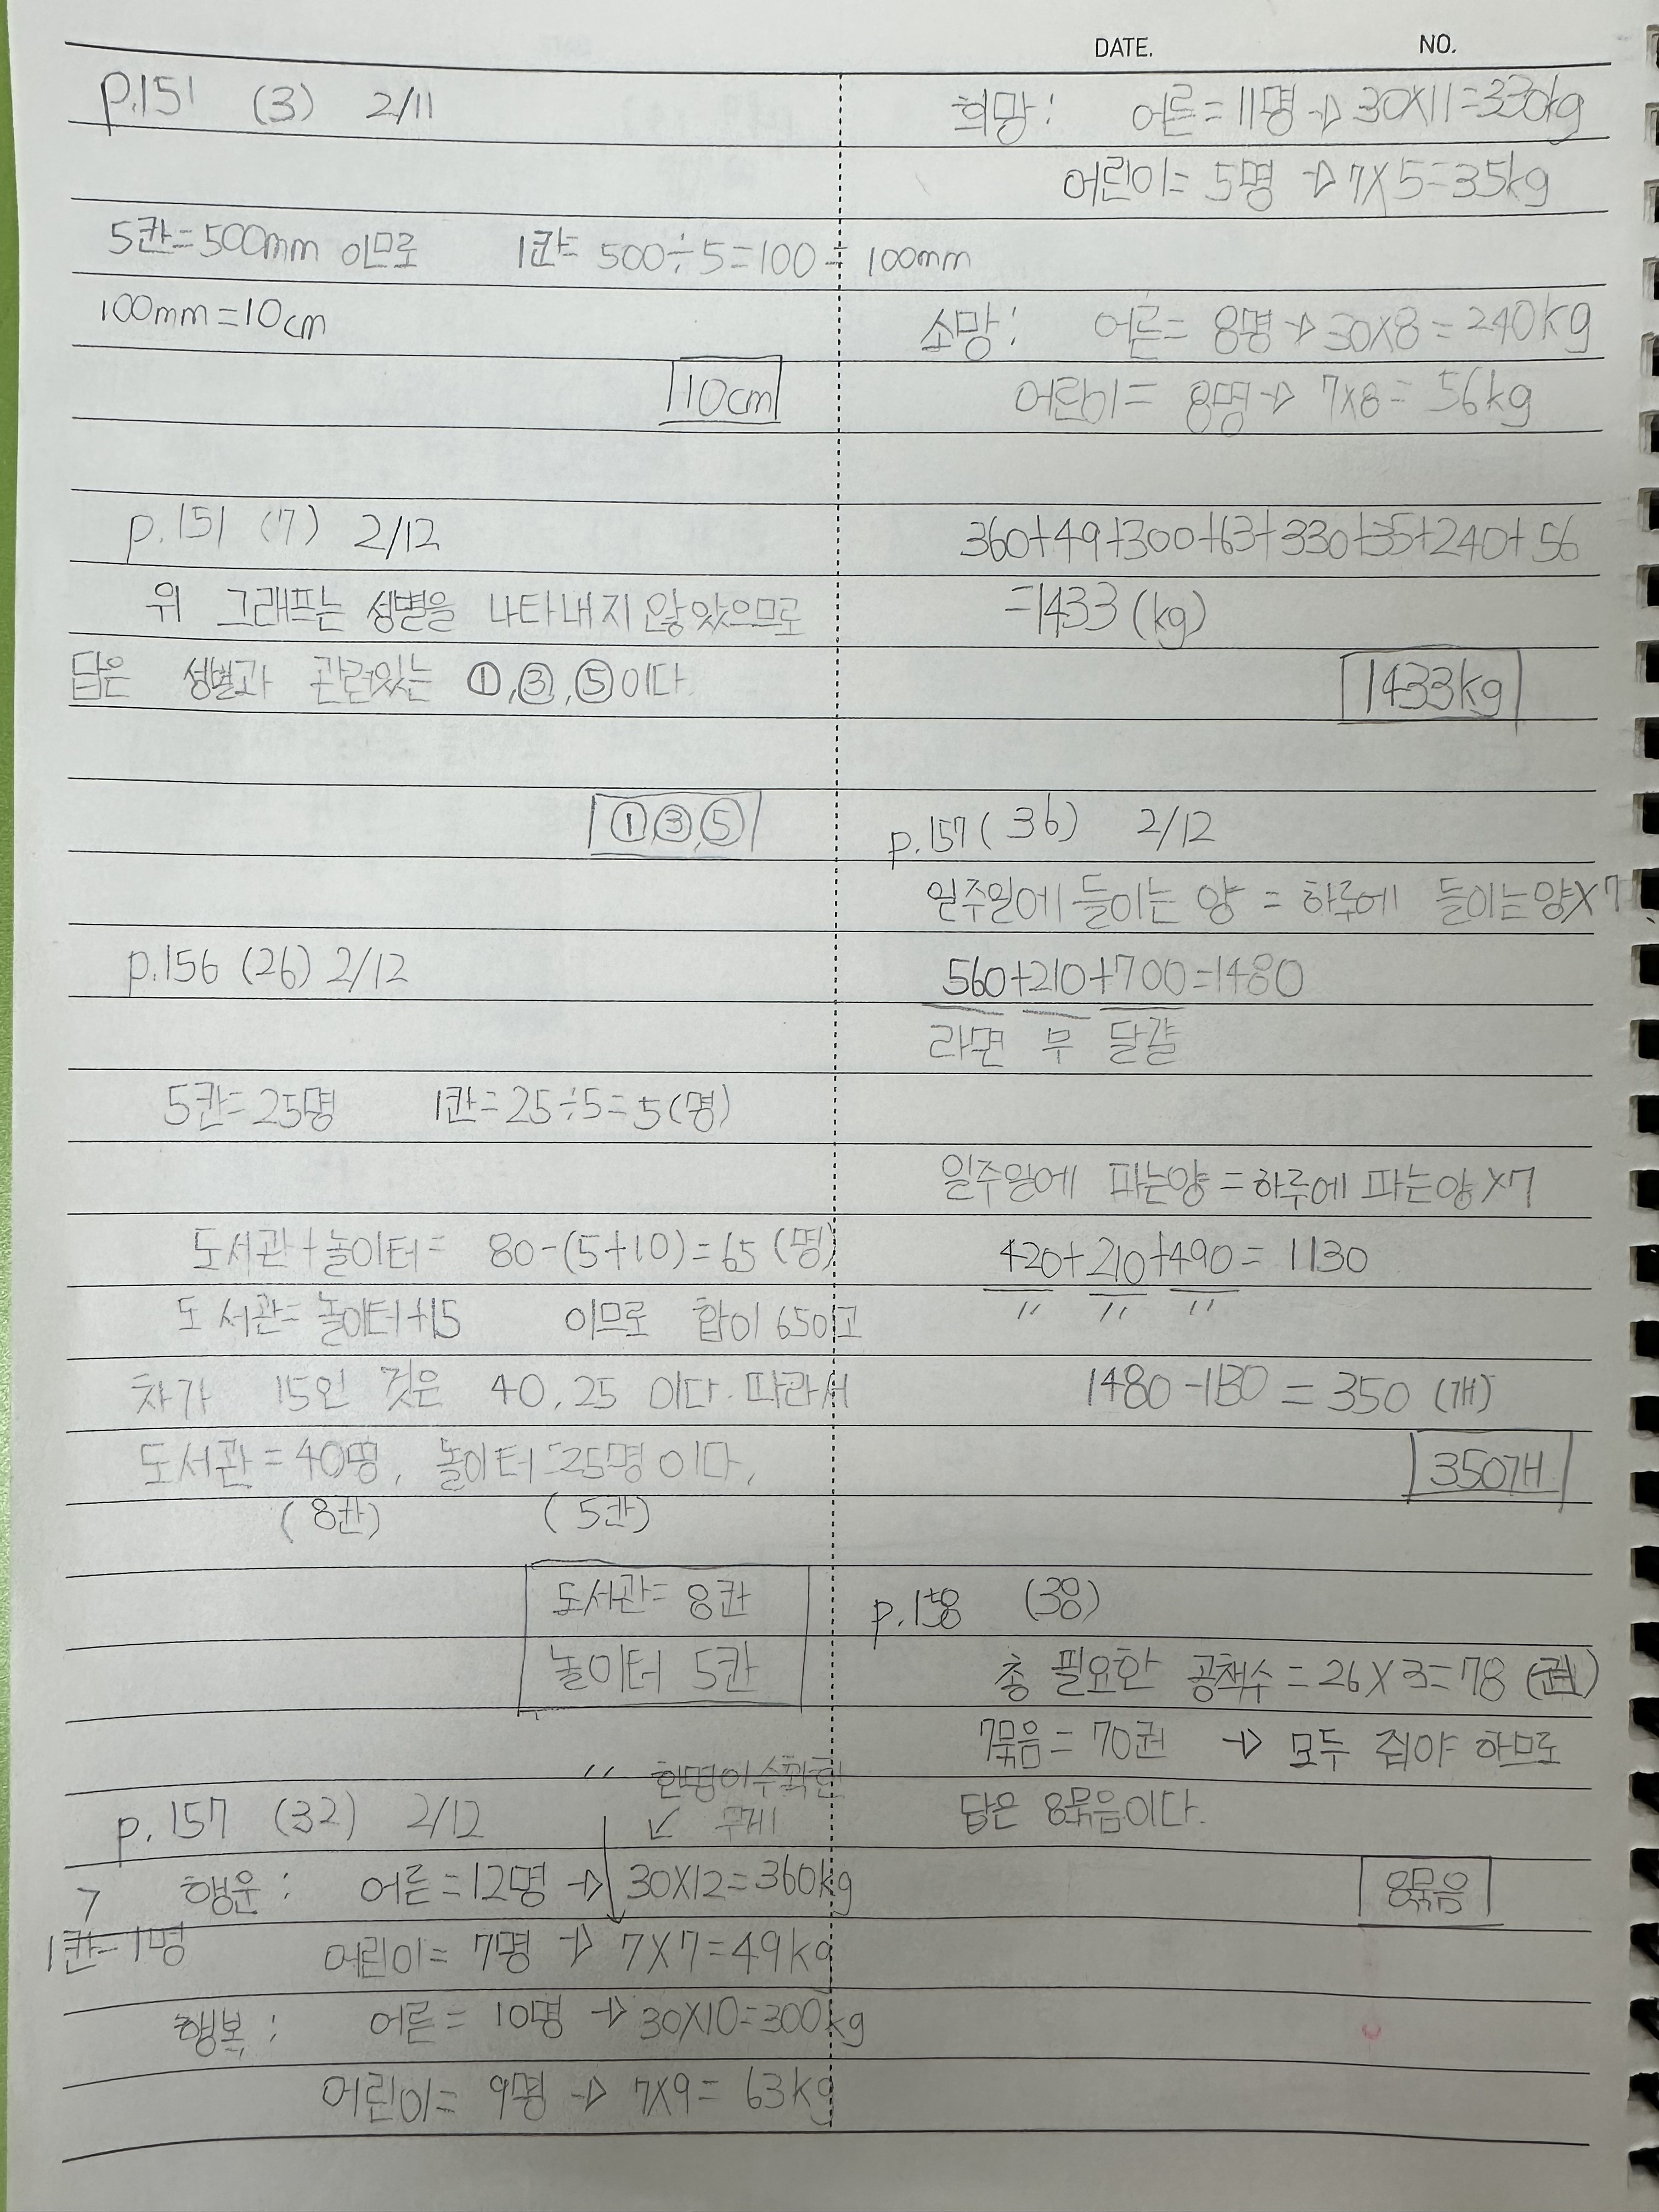 DATE. NO.
p.151 (3) 2/11
5칸=500mm 이므로 1칸= 500÷5=100 = 100mm
100mm=10cm
10cm
p.151 (7) 2/12
위 그래프는 성별을 나타내지 않았으므로
답은 성별과 관련있는 ①,③,⑤이다.
①③,⑤
p.156 (26) 2/12
5칸=25명 1칸=25÷5=5(명)
도서관+놀이터= 80-(5+10)=65 (명)
도서관=놀이터+15 이므로 합이 65이고
차가 15인 것은 40, 25 이다. 따라서
도서관=40명, 놀이터=25명 이다.
(8칸) (5칸)
도서관= 8칸
놀이터 5칸
〃 한명이수확한
무게
p.157 (32) 2/12
행운: 어른=12명 → 30×12=360kg
1칸=1명
어린이= 7명 → 7×7=49kg
행복: 어른= 10명 → 30×10=300kg
어린이= 9명 → 7×9= 63kg
희망: 어른=11명 → 30×11=330kg
어린이= 5명 → 7×5=35kg
소망: 어른= 8명 → 30×8=240kg
어린이= 8명 → 7×8= 56kg
360+49+300+63+330+35+240+56
=1433(kg)
1433kg
p.157(36) 2/12
일주일에 들이는 양 = 하루에 들이는양×7
560+210+700=1480
라면 무 달걀
일주일에 파는양=하루에 파는양×7
420+210+490= 1130
〃 〃 〃
1480-1130 = 350 (개)
350개
p.158 (38)
총 필요한 공책수=26×3=78 (권)
7묶음= 70권 → 모두 줘야 하므로
답은 8묶음이다.
8묶음